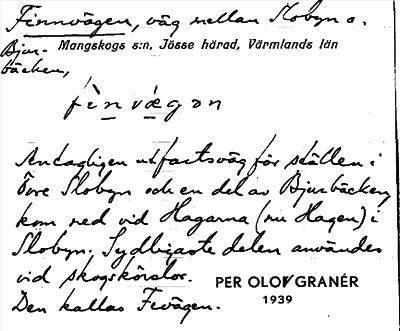 Finnvägen, väg mellan Slobyn o.
Bjur-
bäcken,
Mangskogs s:n, Jösse härad, Värmlands län
fìnvægan
Antagligen utfartsväg för ställen i
Övre Slobyn och en del av Bjurbäcken,
kom ned vid Hagarna (nu Hagen) i
Slobyn. Sydligaste delen användes
vid skogskörslor.
Den kallas Fevägen.
PER OLOV GRANÉR
1939